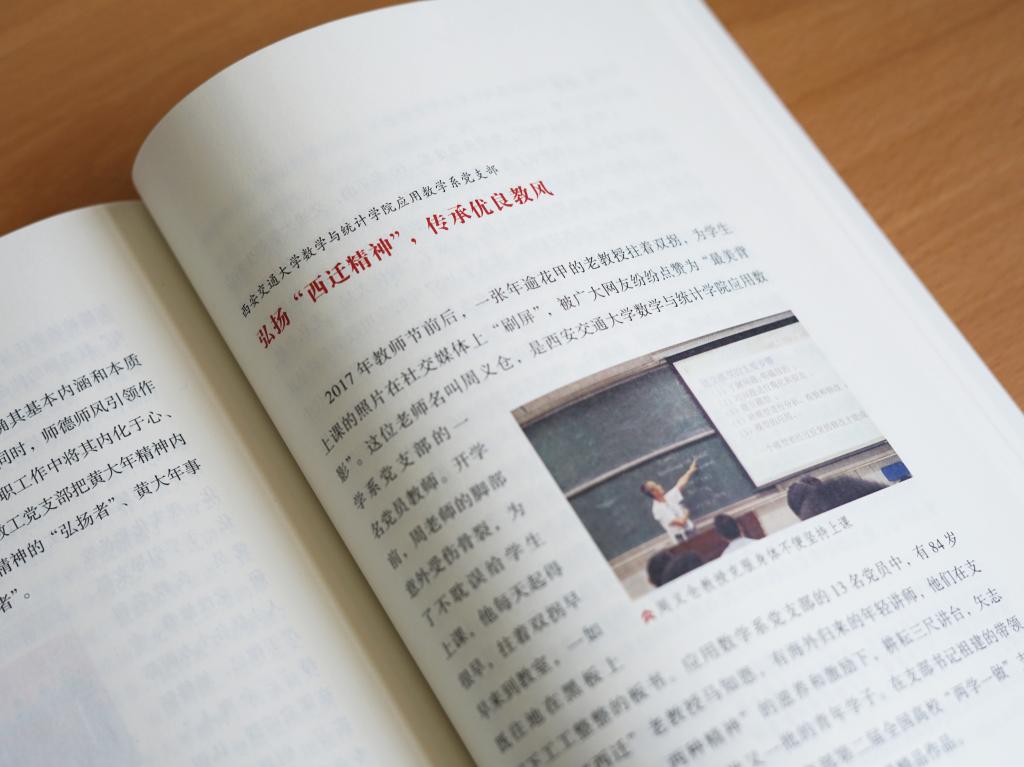 涵其基本内涵和本质
同时，师德师风引领作
职工作中将其内化于心、
教工党支部把黄大年精神内
精神的“弘扬者”、黄大年事
者”。
西安交通大学数学与统计学院应用数学系党支部
弘扬“西迁精神”，传承优良教风
2017 年教师节前后，一张年逾花甲的老教授拄着双拐，为学生
上课的照片在社交媒体上“刷屏”，被广大网友纷纷点赞为“最美背
影”。这位老师名叫周义仓，是西安交通大学数学与统计学院应用数
学系党支部的一
名党员教师。开学
前，周老师的脚部
意外受伤骨裂，为
了不耽误给学生
上课，他每天起得
很早，拄着双拐早
早来到教室，一如
既往地在黑板上
写下工工整整的板书。应用数学系党支部的 13 名党员中，有 84 岁
西迁”老教授马知恩，有海外归来的年轻讲师，他们在支
两种精神”的滋养和激励下，耕耘三尺讲台，矢志
又一批的青年学子。在支部书记组建的带领
部第二届全国高校“两学一做”
精品作品。
周义仓教授克服身体不便坚持上课